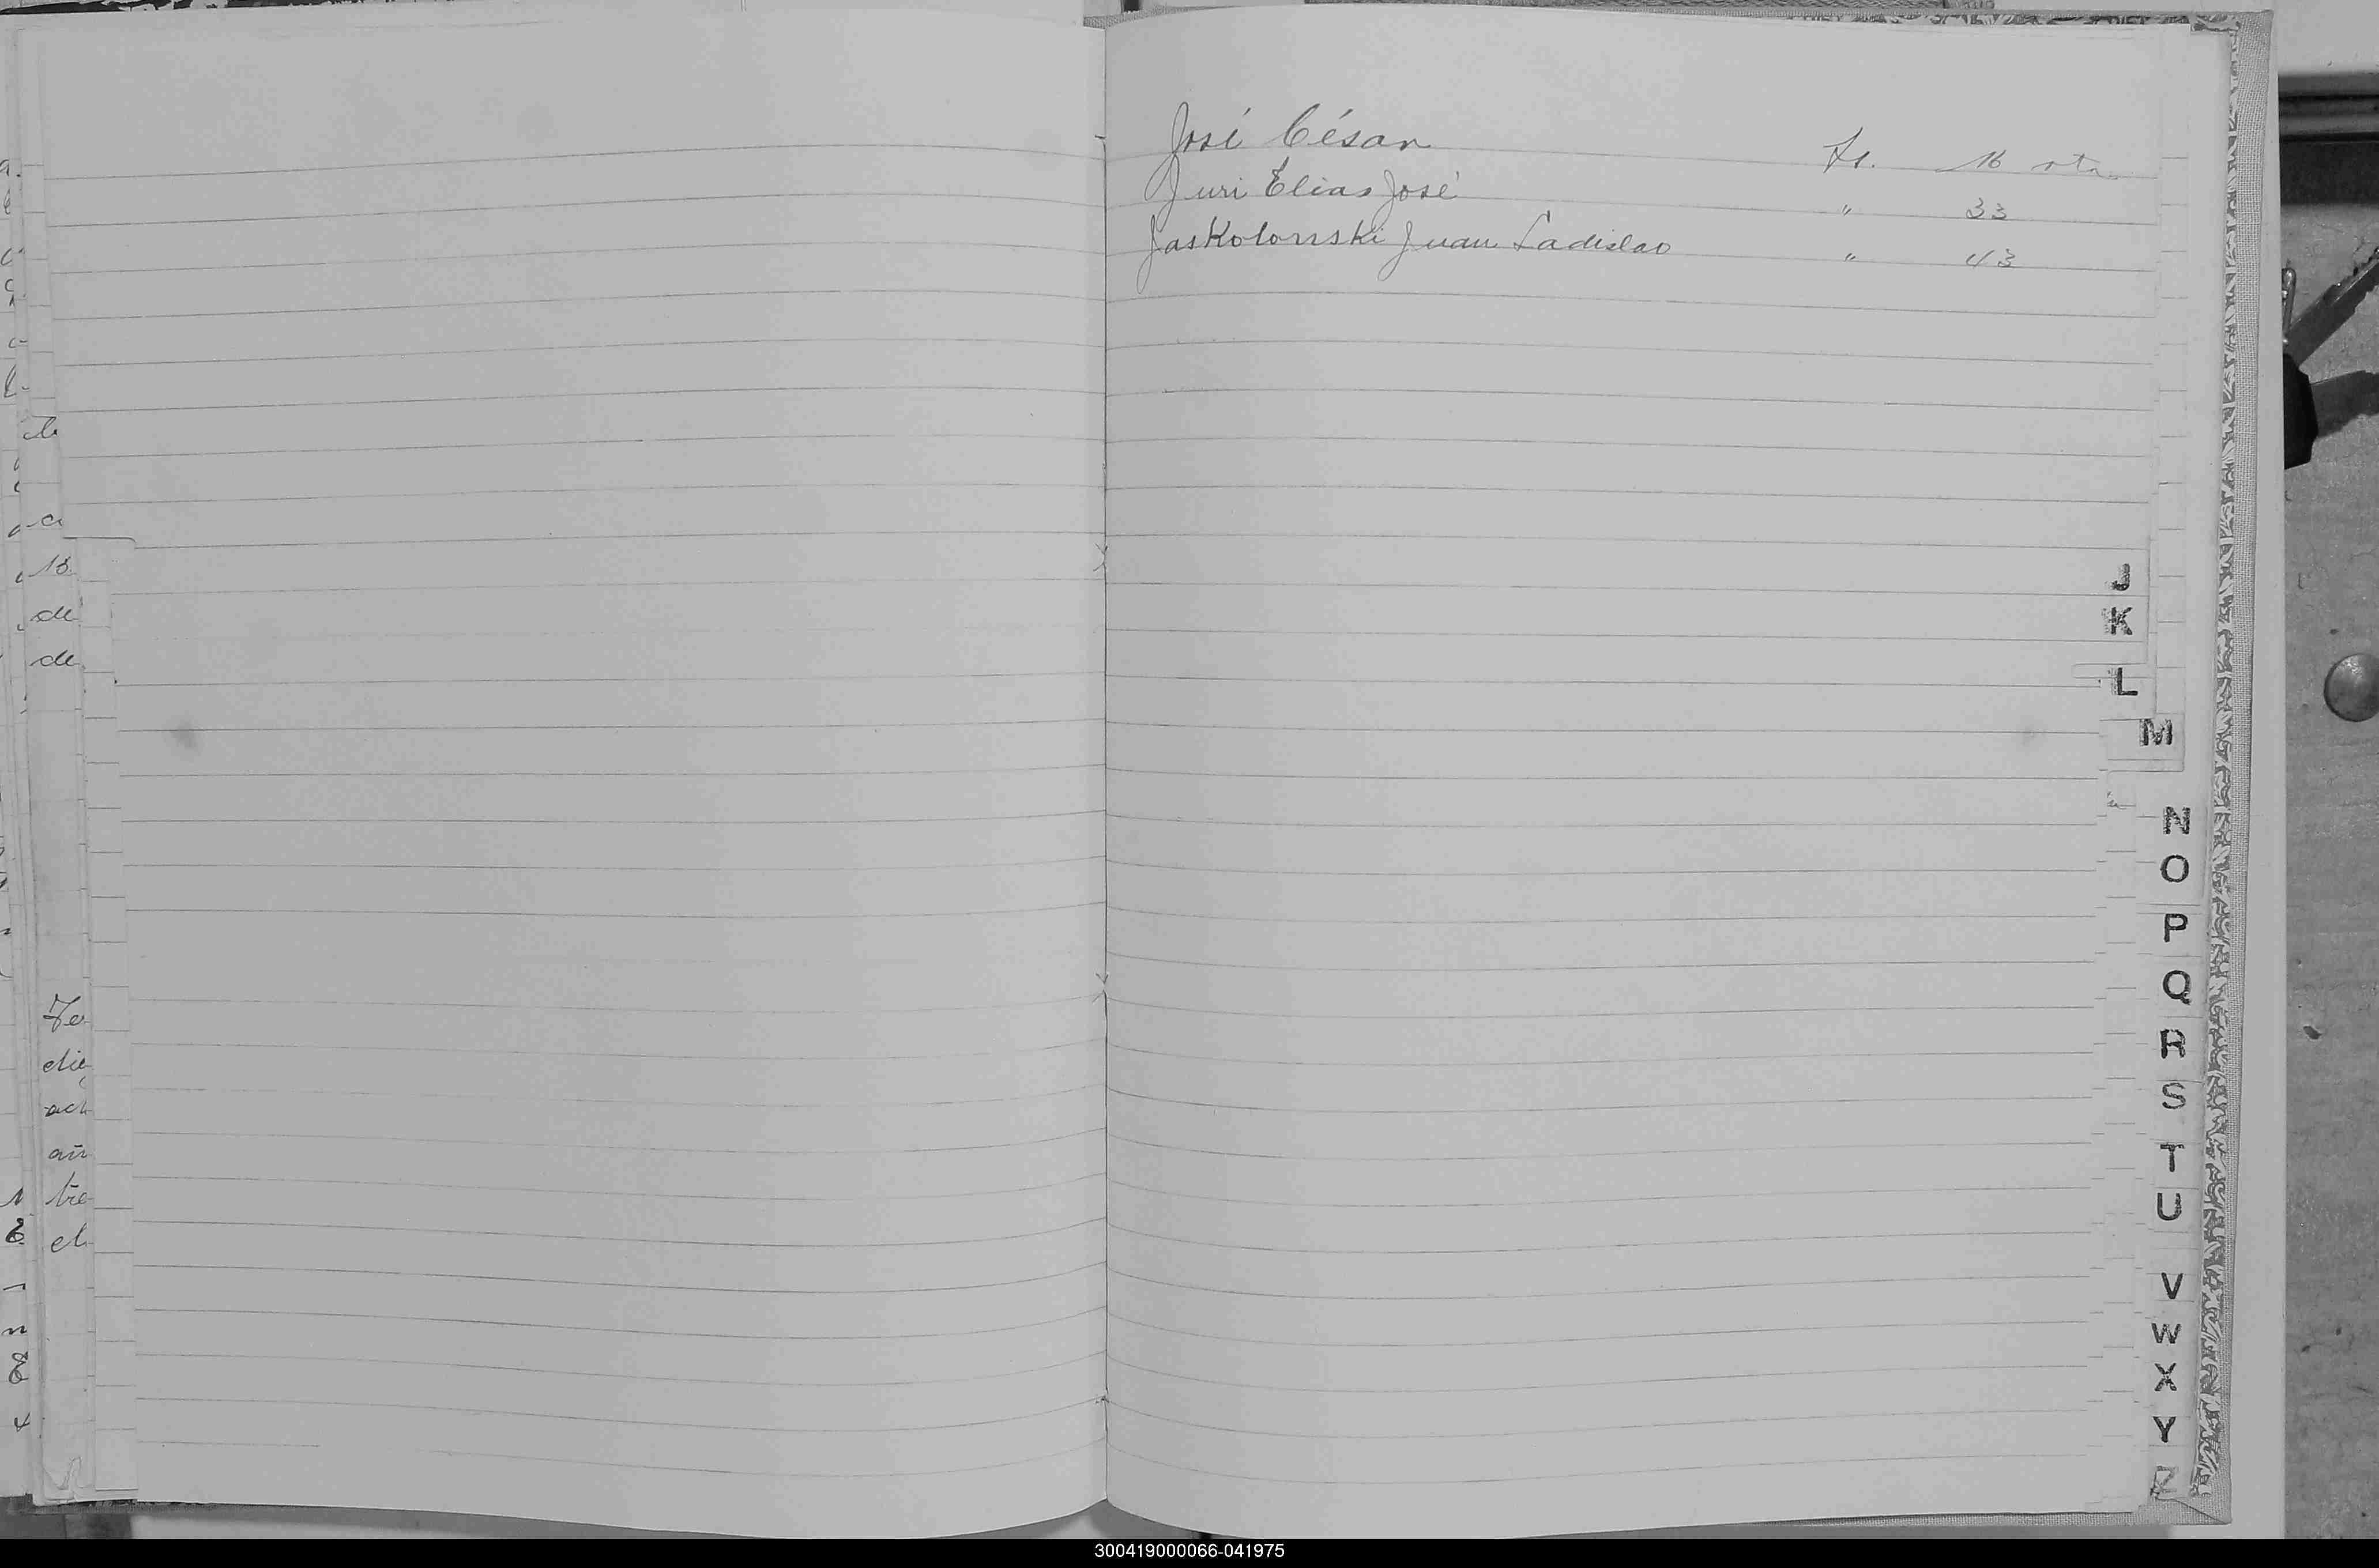 José César Fs. 16 vta.
Juri Elias José " 33
Jaskolonski Juan Ladislao " 43
J
K
L
M
N
O
P
Q
R
S
T
U
V
W
X
Y
Z
de
de
añ
el
300419000066-041975